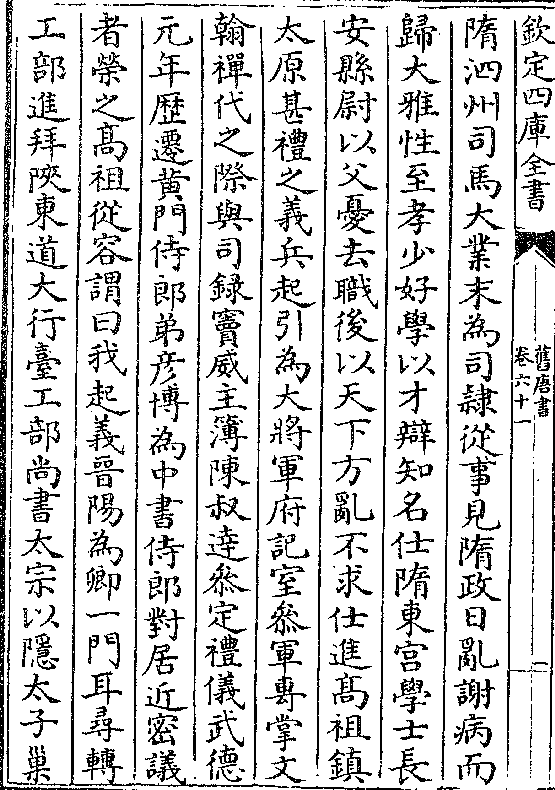 欽定四庫全書
舊唐書
卷六十一
二
隋泗州司馬大業末為司隸從事見隋政日亂謝病而
歸大雅性至孝少好學以才辯知名仕隋東宮學士長
安縣尉以父憂去職後以天下方亂不求仕進髙祖鎮
太原甚禮之義兵起引為大將軍府記室叅軍專掌文
翰禪代之際與司錄竇威主簿陳叔逹叅定禮儀武德
元年歴遷黄門侍郎弟彦博為中書侍郎對居近密議
者榮之髙祖從容謂曰我起義晉陽為卿一門耳尋轉
工部進拜陜東道大行臺工部尚書太宗以隱太子巢